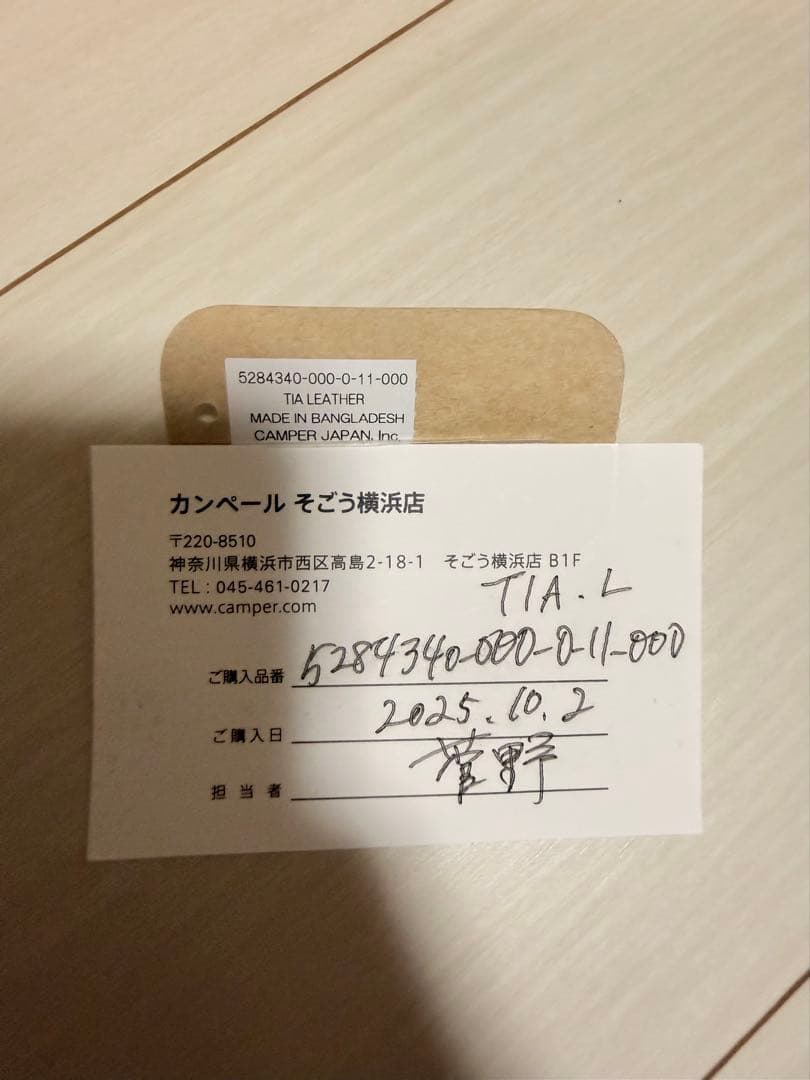 5284340-000-0-11-000
TIA LEATHER
MADE IN BANGLADESH
CAMPER JAPAN, Inc.
カンペール そごう横浜店
〒220-8510
神奈川県横浜市西区高島2-18-1 そごう横浜店 B1F
TEL : 045-461-0217
www.camper.com
TIA. L
ご購入品番 5284340-000-0-11-000
ご購入日 2025.10.2
担当者 菅野